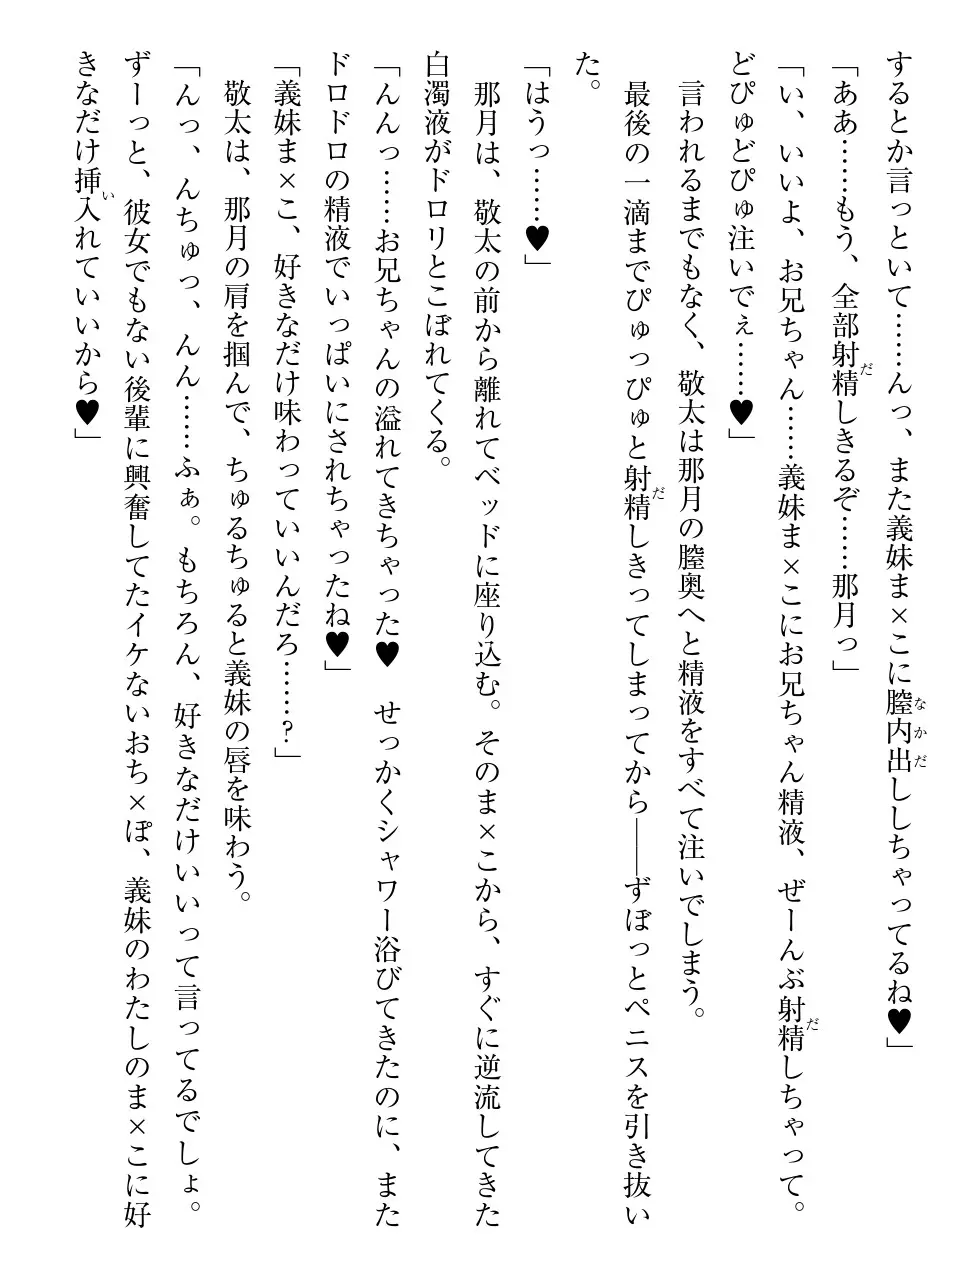 するとか言っといて……んっ、また義妹ま×こに膣内出ししちゃってるね♥」
なかだ
「ああ……もう、全部射精しきるぞ……那月っ」
だ
「い、いいよ、お兄ちゃん……義妹ま×こにお兄ちゃん精液、ぜーんぶ射精しちゃって。
だ
どぴゅどぴゅ注いでぇ……♥」
　言われるまでもなく、敬太は那月の膣奥へと精液をすべて注いでしまう。
　最後の一滴までぴゅっぴゅと射精しきってしまってから――ずぼっとペニスを引き抜い
だ
た。
「はうっ……♥」
　那月は、敬太の前から離れてベッドに座り込む。そのま×こから、すぐに逆流してきた
白濁液がドロリとこぼれてくる。
「んんっ……お兄ちゃんの溢れてきちゃった♥　せっかくシャワー浴びてきたのに、また
ドロドロの精液でいっぱいにされちゃったね♥」
「義妹ま×こ、好きなだけ味わっていいんだろ……?」
　敬太は、那月の肩を掴んで、ちゅるちゅると義妹の唇を味わう。
「んっ、んちゅっ、んん……ふぁ。もちろん、好きなだけいいって言ってるでしょ。
ずーっと、彼女でもない後輩に興奮してたイケないおち×ぽ、義妹のわたしのま×こに好
きなだけ挿入れていいから♥」
い